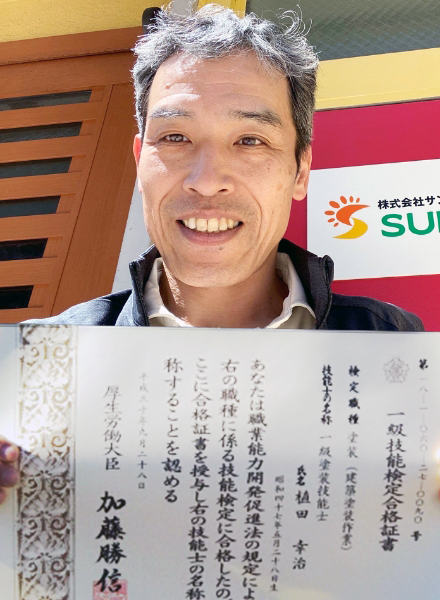 株式会社サン
SU
一級技能検定合格証書
検定職種 塗装（建築塗装作業）
技能士の名称 一級塗装技能士
氏名 植田 幸治
昭和四十七年五月二十八日生
あなたは職業能力開発促進法の規定によ
右の職種に係る技能検定に合格したの
ここに合格証書を授与し右の技能士の名称
称することを認める
厚生労働大臣 加藤勝信